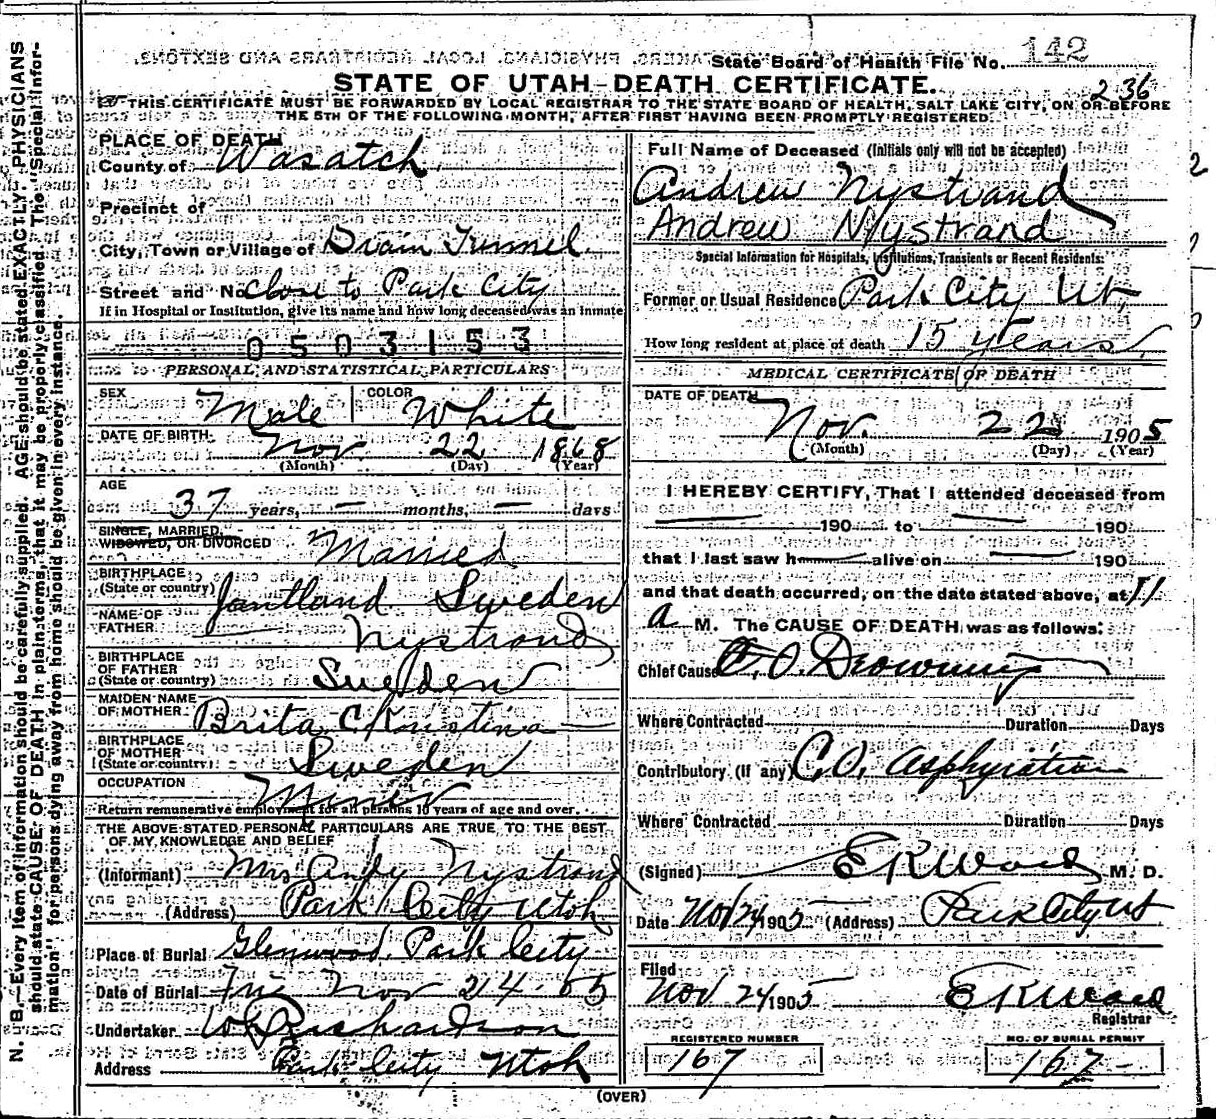 State Board of Health File No. 142
STATE OF UTAH—DEATH CERTIFICATE.
236
THIS CERTIFICATE MUST BE FORWARDED BY LOCAL REGISTRAR TO THE STATE BOARD OF HEALTH, SALT LAKE CITY, ON OR BEFORE
THE 5TH OF THE FOLLOWING MONTH, AFTER FIRST HAVING BEEN PROMPTLY REGISTERED.
N. B.—Every item of information should be carefully supplied. AGE should be stated EXACTLY. PHYSICIANS
should state CAUSE OF DEATH in plain terms, that it may be properly classified. The "Special Infor-
mation" for persons dying away from home should be given in every instance.
PLACE OF DEATH
County of Wasatch
Precinct of
City, Town or Village of Drain Tunnel
Street and No. Close to Park City
If in Hospital or Institution, give its name and how long deceased was an inmate
0503153
PERSONAL AND STATISTICAL PARTICULARS
SEX Male COLOR White
DATE OF BIRTH Nov 22 1868
(Month) (Day) (Year)
AGE
37 years, — months, — days
SINGLE, MARRIED,
WIDOWED, OR DIVORCED Married
BIRTHPLACE
(State or country) Jantland Sweden
NAME OF
FATHER — Nystrand
BIRTHPLACE
OF FATHER
(State or country) Sweden
MAIDEN NAME
OF MOTHER Brita C Kristina —
BIRTHPLACE
OF MOTHER
(State or country) Sweden
OCCUPATION Miner
Return remunerative employment for all persons 10 years of age and over.
THE ABOVE STATED PERSONAL PARTICULARS ARE TRUE TO THE BEST
OF MY KNOWLEDGE AND BELIEF
(Informant) Mrs Andy Nystrand
(Address) Park City Utah
Place of Burial Glenwood Park City
Date of Burial Fri Nov 24 - 05
Undertaker Richardson
Address Park City Utah
Full Name of Deceased (Initials only will not be accepted)
Andrew Nystrand
Andrew Nystrand
Special Information for Hospitals, Institutions, Transients or Recent Residents:
Former or Usual Residence Park City Ut,
How long resident at place of death 15 years
MEDICAL CERTIFICATE OF DEATH
DATE OF DEATH
Nov. 22 1905
(Month) (Day) (Year)
I HEREBY CERTIFY, That I attended deceased from
— 190 to — 190
that I last saw h— alive on — 190
and that death occurred, on the date stated above, at 11
a M. The CAUSE OF DEATH was as follows:
Chief Cause Drowning
Where Contracted Duration Days
Contributory (If any) C.O. Asphyxiation
Where Contracted Duration Days
(Signed) E R Ward M. D.
Date Nov 24 1905 (Address) Park City Ut
Filed
Nov 24 1905 E R Ward
Registrar
REGISTERED NUMBER
167
NO. OF BURIAL PERMIT
167 —
(OVER)